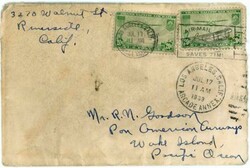 3270 Walnut St.
Riverside,
Calif.
AIR MAIL
SAVES TIME
LOS ANGELES, CALIF.
JUL 17
11 AM
1939
ARCADE ANNEX
Mr. R.N. Goodson
Pan American Airways
Wake Island,
Pacific Ocean